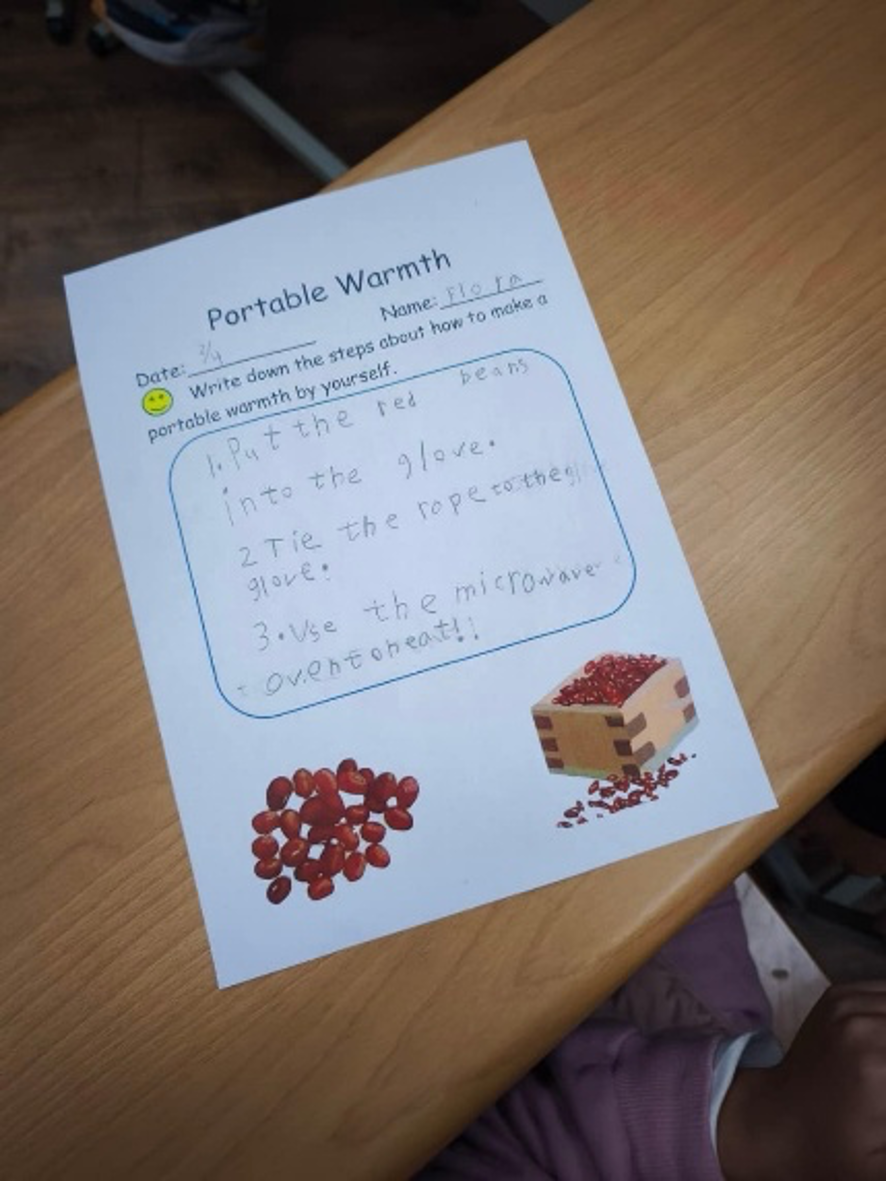 Portable Warmth
Name: Flora
Date: 2/4
Write down the steps about how to make a
portable warmth by yourself.
1. Put the red beans
into the glove.
2 Tie the rope to the
glove.
3. Use the microwave
oven to heat!!